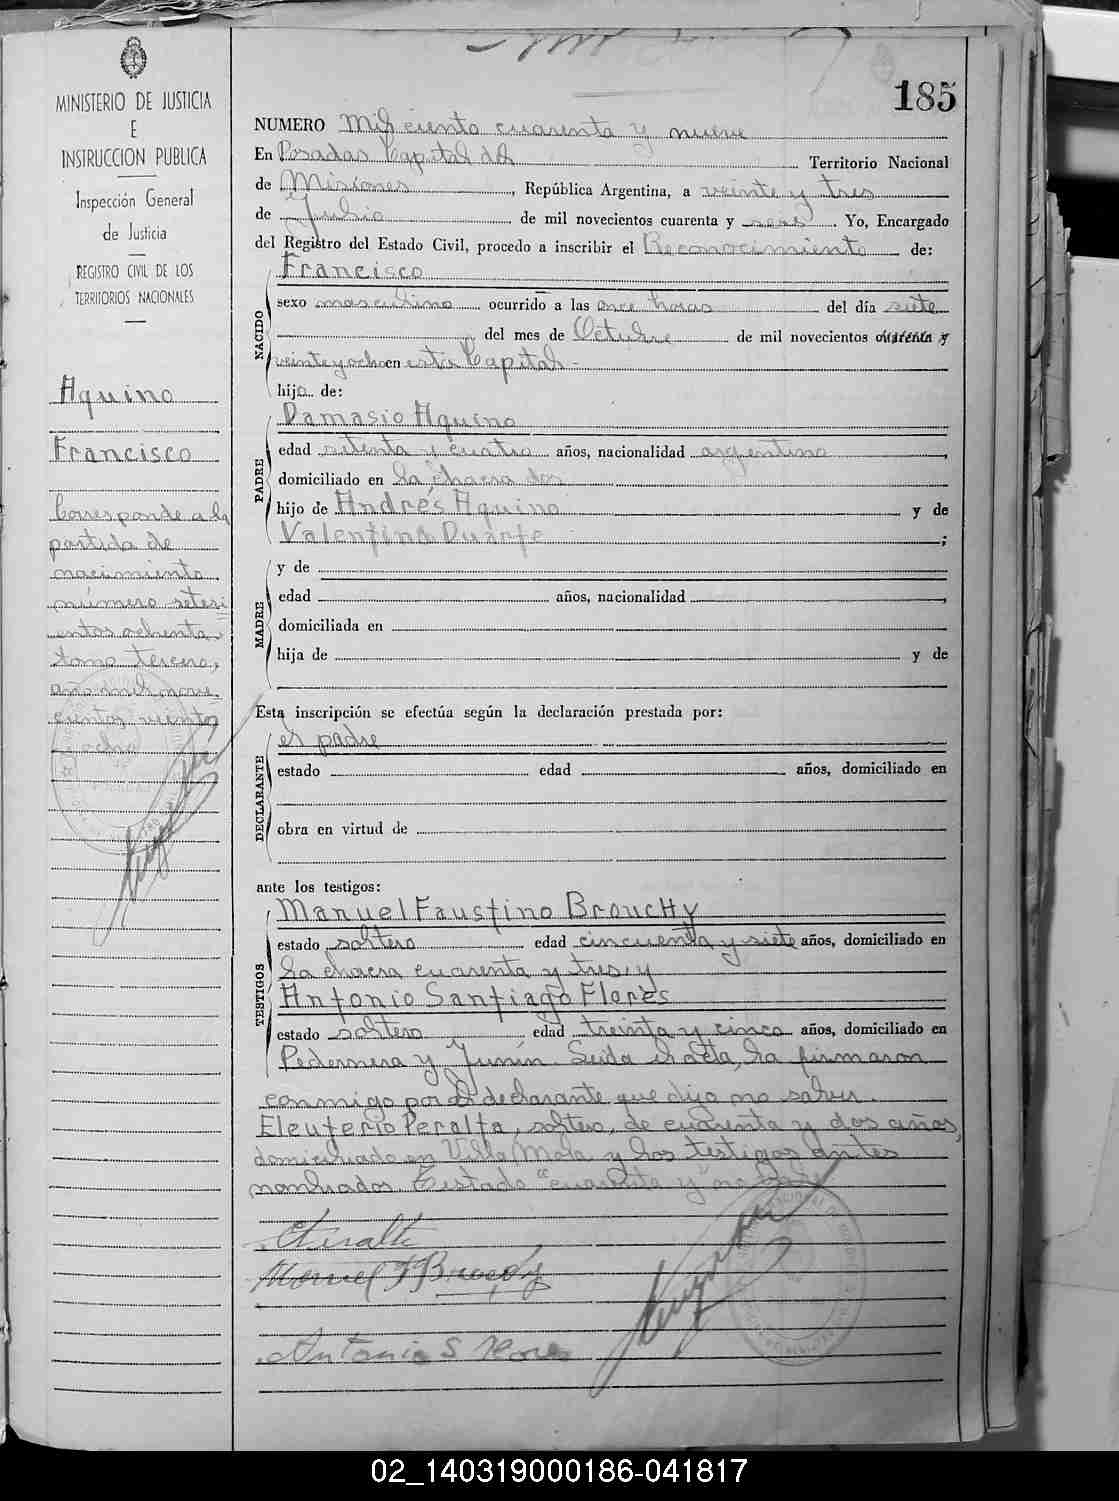 185
MINISTERIO DE JUSTICIA
E
INSTRUCCION PUBLICA
Inspección General
de Justicia
REGISTRO CIVIL DE LOS
TERRITORIOS NACIONALES
Aquino
Francisco
Corresponde a la
partida de
nacimiento
número seteci
entos ochenta,
tomo tercero,
año mil nove
cientos veinte
y ocho
NUMERO Mil ciento cuarenta y nueve
En Posadas Capital del Territorio Nacional
de Misiones, República Argentina, a veinte y tres
de Julio de mil novecientos cuarenta y seis. Yo, Encargado
del Registro del Estado Civil, procedo a inscribir el Reconocimiento de:
NACIDO
Francisco
sexo masculino ocurrido a las once horas del día siete
del mes de Octubre de mil novecientos cuarenta y
veinte y ocho en esta Capital
hijo de:
PADRE
Damasio Aquino
edad setenta y cuatro años, nacionalidad argentino,
domiciliado en La chacra dos
hijo de Andrés Aquino y de
Valentina Duarte;
MADRE
y de
edad años, nacionalidad,
domiciliada en
hija de y de
Esta inscripción se efectúa según la declaración prestada por:
DECLARANTE
el padre
estado edad años, domiciliado en
obra en virtud de
ante los testigos:
TESTIGOS
Manuel Faustino Brouchy
estado soltero edad cincuenta y siete años, domiciliado en
La chacra cuarenta y tres, y
Antonio Santiago Flores
estado soltero edad treinta y cinco años, domiciliado en
Pedernera y Junín. Leída el acta, la firmaron
conmigo por el declarante que dijo no saber.
Eleuterio Peralta, soltero, de cuarenta y dos años,
domiciliado en Villa Mola y los testigos antes
nombrados. Testado "cuarenta y" no vale
E Peralta
Manuel F Brouchy
Antonio S Flores
02_140319000186-041817